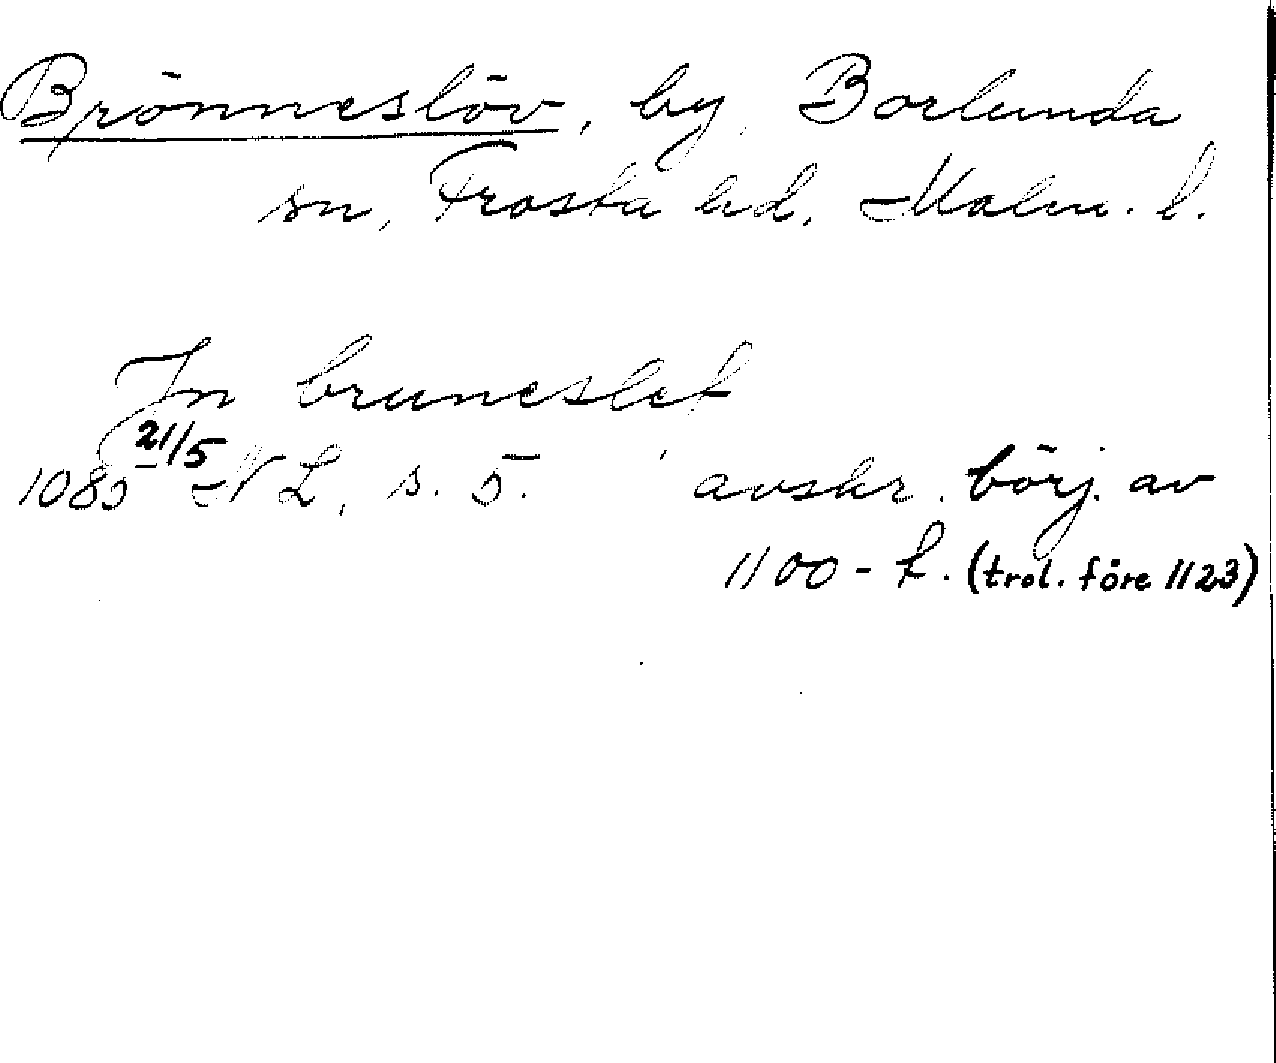 Brönneslöv, by, Borlunda
sn, Frosta hd, Malm. l.
In bruneslef
1085 21/5 NL, s. 5. avskr. börj. av
1100-t. (trol. före 1123)